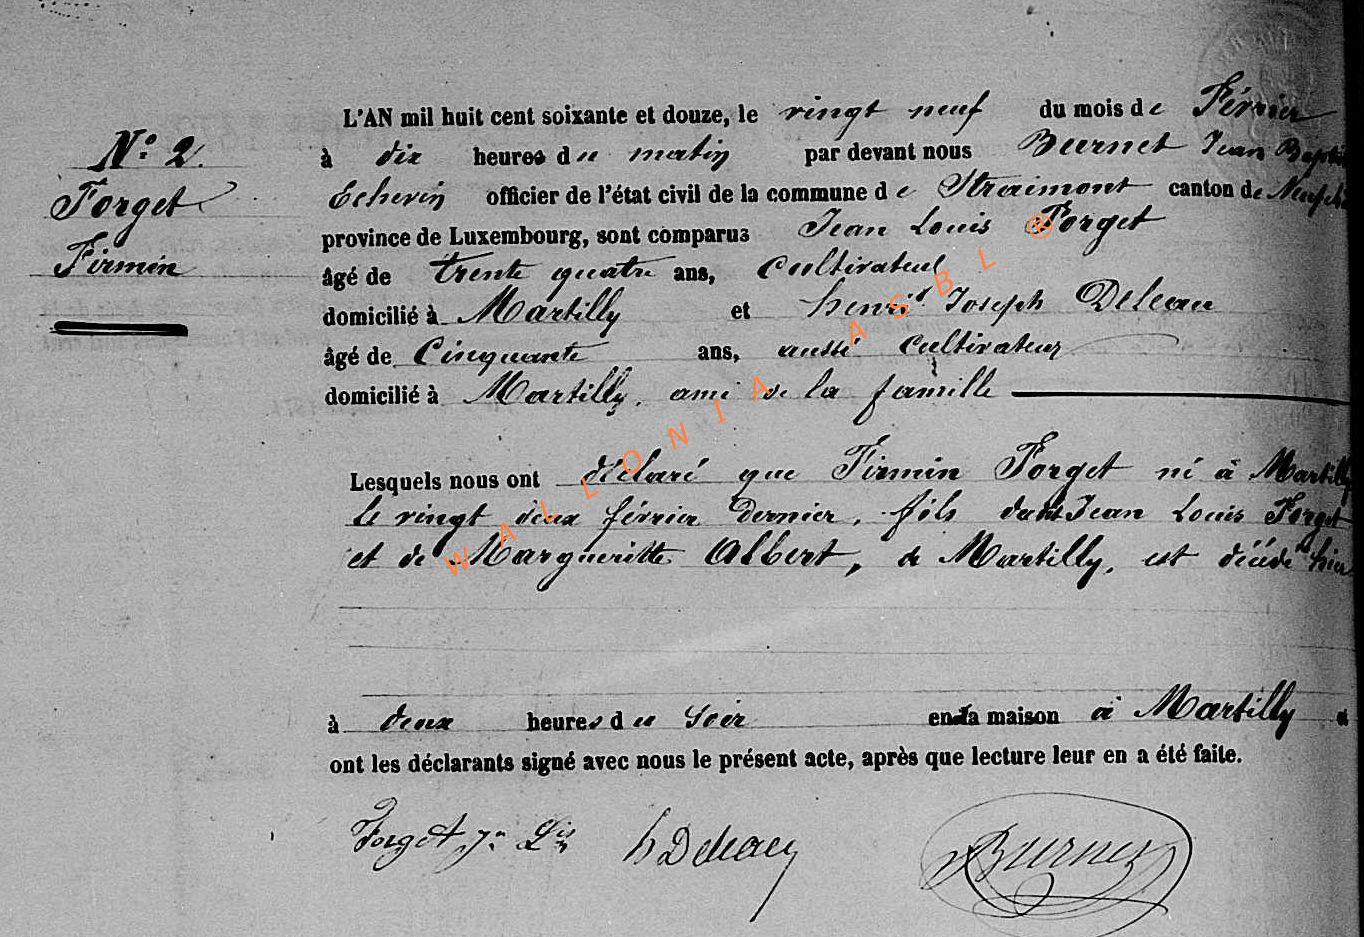 N° 2.
Forget
Firmin
L'AN mil huit cent soixante et douze, le vingt neuf du mois de Février
à dix heures du matin par devant nous Burnet Jean Baptis
Echevin officier de l'état civil de la commune de Straimont canton de Neufch
province de Luxembourg, sont comparus Jean Louis Forget
âgé de trente quatre ans, Cultivateur
domicilié à Martilly et henri Joseph Deleau
âgé de Cinquante ans, aussi Cultivateur
domicilié à Martilly, ami de la famille
Lesquels nous ont déclaré que Firmin Forget né à Martilly
le vingt deux février dernier, fils dudit Jean Louis Forget
et de Margueritte Albert, de Martilly, est décédé hier
à deux heures du Soir en la maison à Martilly et
ont les déclarants signé avec nous le présent acte, après que lecture leur en a été faite.
Forget Jn Lis h Deleau Burnet
WALLONIA ASBL ®